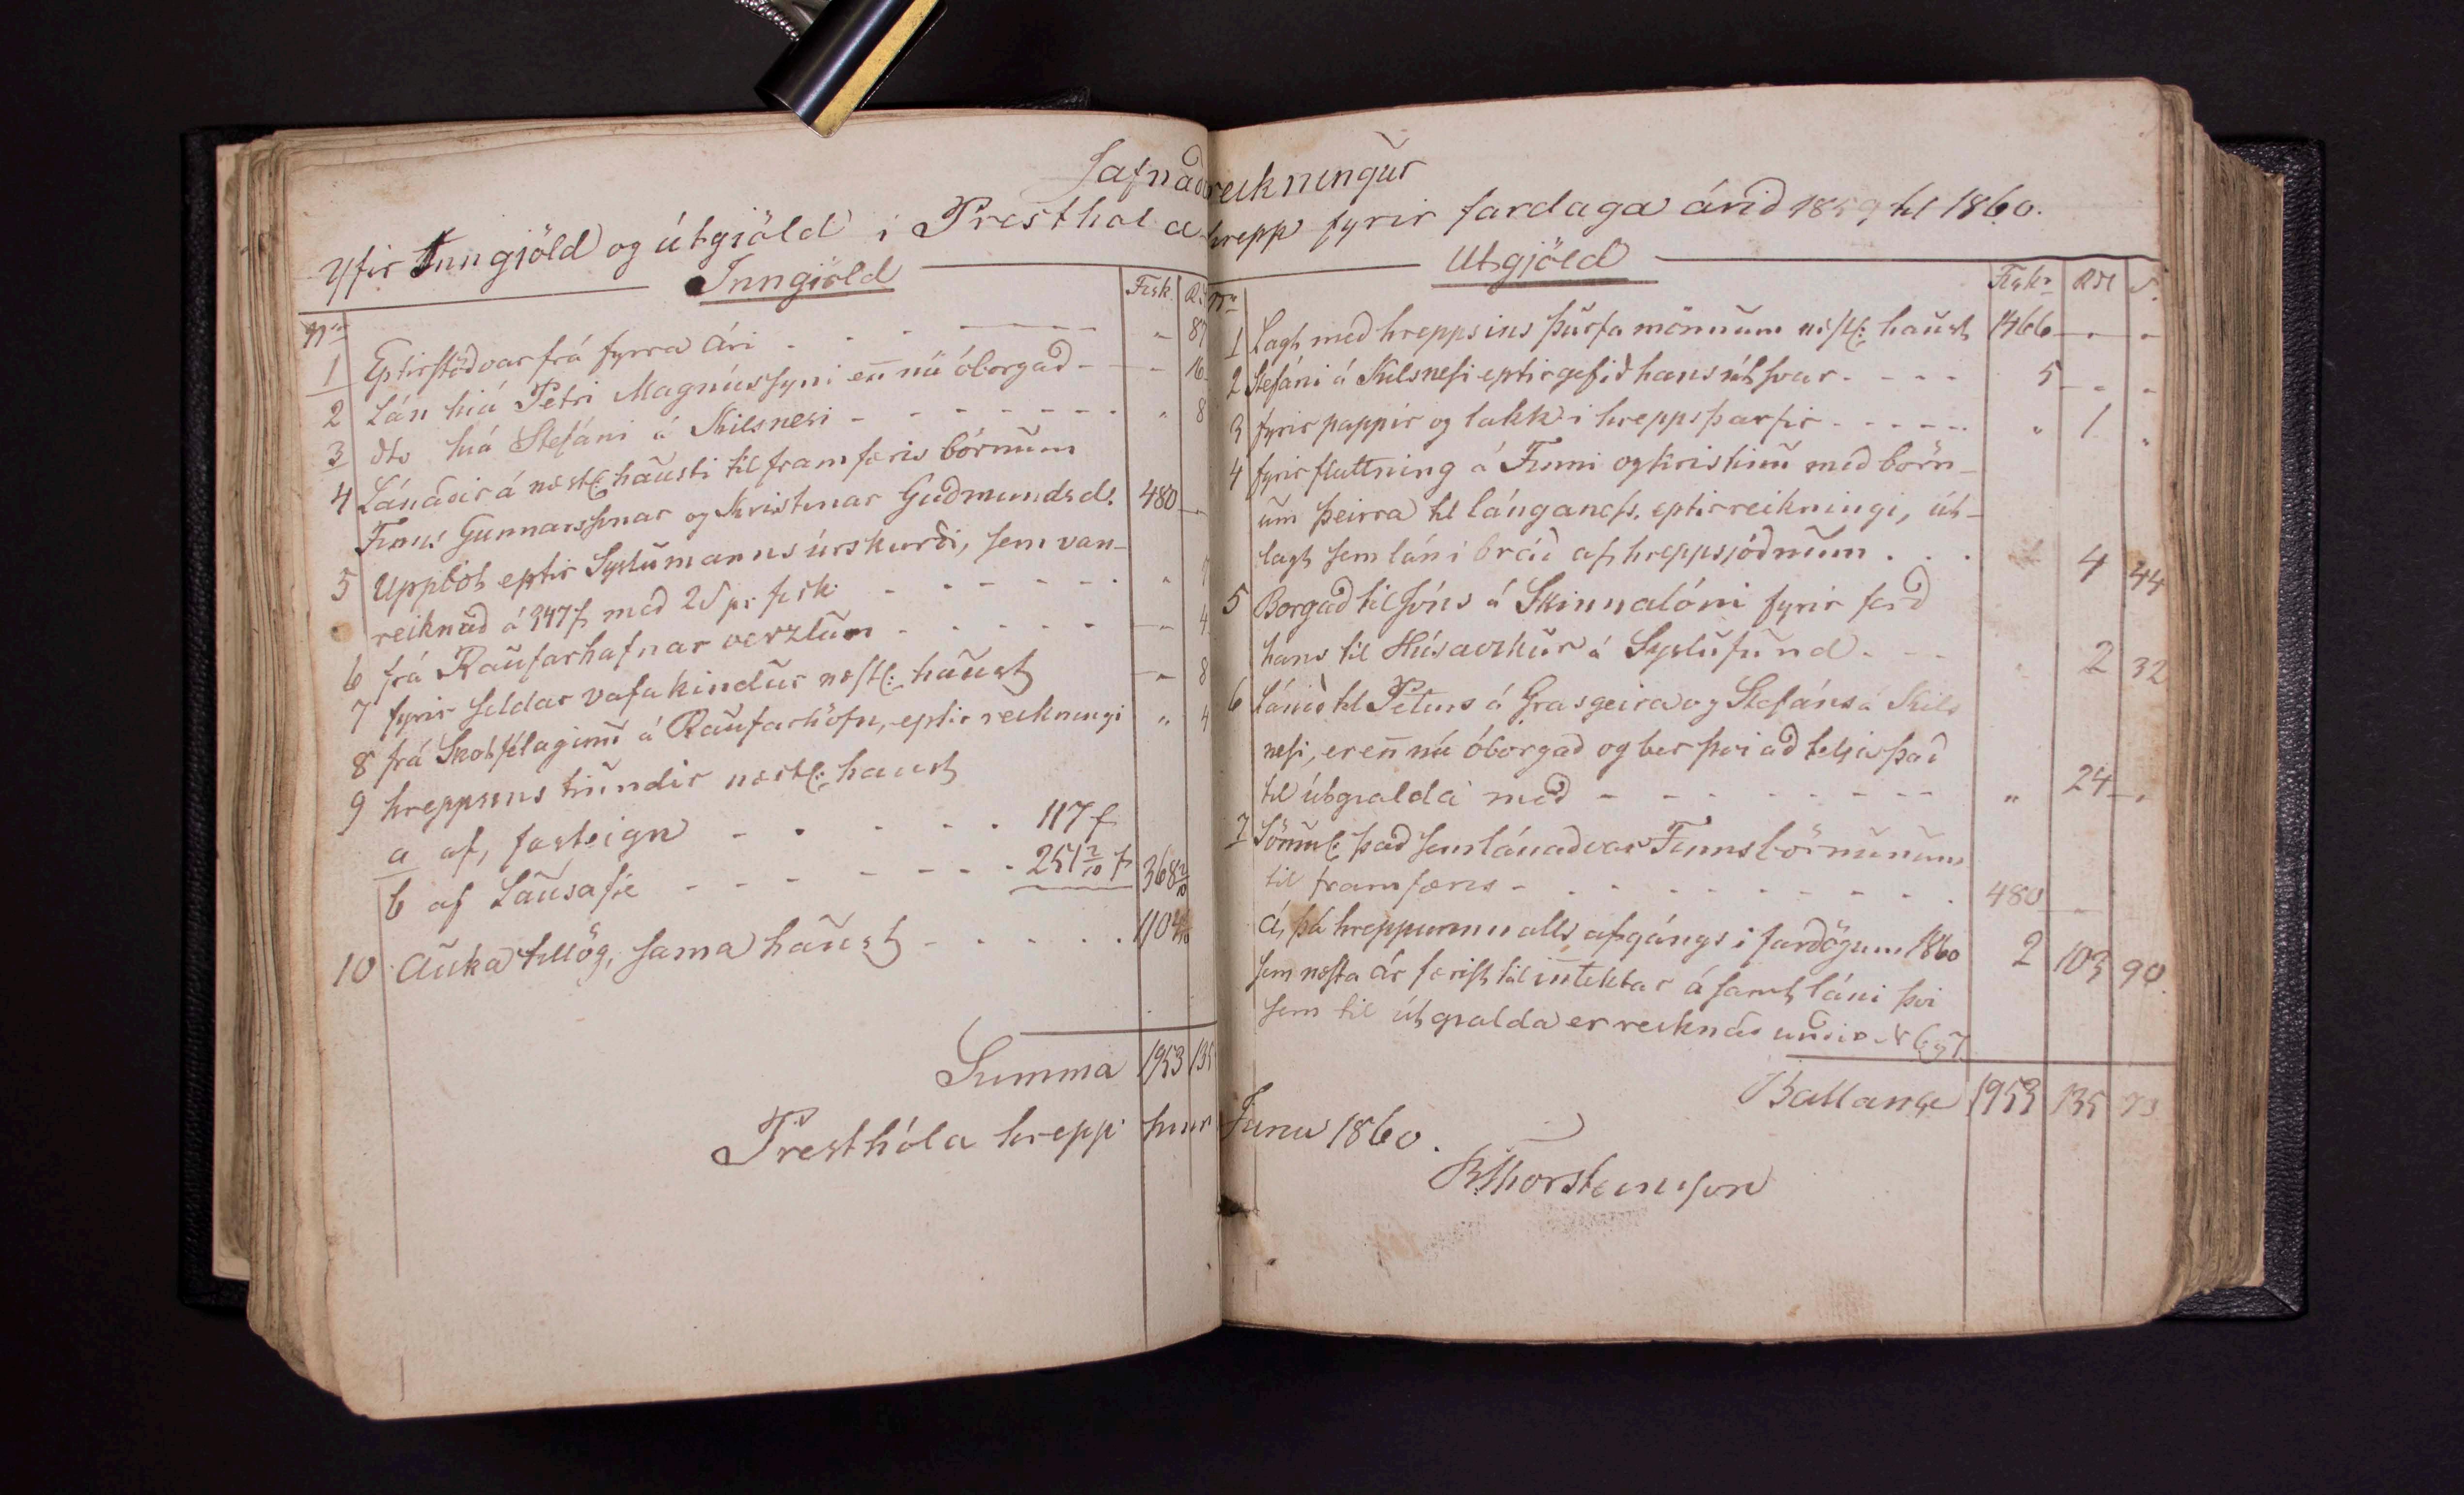 Jafnaðarreikningur
yfir Inngjöld og útgjöld i Presthólahrepp fyrir fardaga árið 1859 til 1860.
Inngiöld
Nro Fisk. Rd
1 Eptirstöðvar frá fyrra ári - - - - „ 87
2 Lán hiá Petri Magnússyni en̄ nú óborgað - - „ 16
3 dto hiá Stefáni á Skilsnesi - - - - - - - „ 8
4 Lánaðir á næstl: hausti til framfæris börnum
Finns Gunnarssonar og Kristinar Guðmundsd. 480 „
5 Uppbót eptir Syslumanns úrskurði, sem van-
reiknað á 347 f. með 2 s pr fisk - - - - - „ 7
6 frá Raufarhafnar verzlun - - - - - „ 4
7 fyrir seldar vafakindur næstl: haust „ 8
8 frá Skotfélaginu á Raufarhöfn, eptir reikningi „ 4
9 hreppsins tiundir næstl: haust
a af, fasteign - - - - - 117 f
b af Lausafie - - - - - - - 251 2/10 f 368 2/10
10 Auka tillög, sama haust - - - - - 1104
Summa 1953 135
Presthóla hrepp
Utgjöld
Nro Fiskr Rdl s.
1 Lagt með hreppsins þurfamönnum næstl: haust 1466 „ „
2 Stefáni á Skilsnesi eptirgefið hans útsvar - - - - 5 „ „
3 fyrir pappír og lakk i hreppsþarfir - - - - - „ 1 „
4 fyrir fluttning á Finni og Kristinu með börn-
um þeirra til lánganess, eptir reikningi, út-
lagt sem lán i bráð af hreppsjóðnum . . . 4 44
5 Borgað til Jóns á Skinnalóni fyrir ferð
hans til Húsavikur á Syslufund - - - „ 2 32
6 Lánið til Peturs á Grasgeira og Stefáns á Skils
nesi, er en̄ nú óborgað og ber þvi að telja það
til útgialda með - - - - - - - - - „ 24 „
7 Sömul: það sem lánað var Finnsbörnunum
til framfæris - - - - - - - - - 480 „
Á, þá hreppurinn alls afgángs i fardögum 1860 2 103 90
sem næsta ár færist til in̄tektar ásamt láni þvi
sem til útgialda er reiknað undir No 6 og 7
Ballance 1953 135
Junii 1860.
Þ. Thorsteinsson